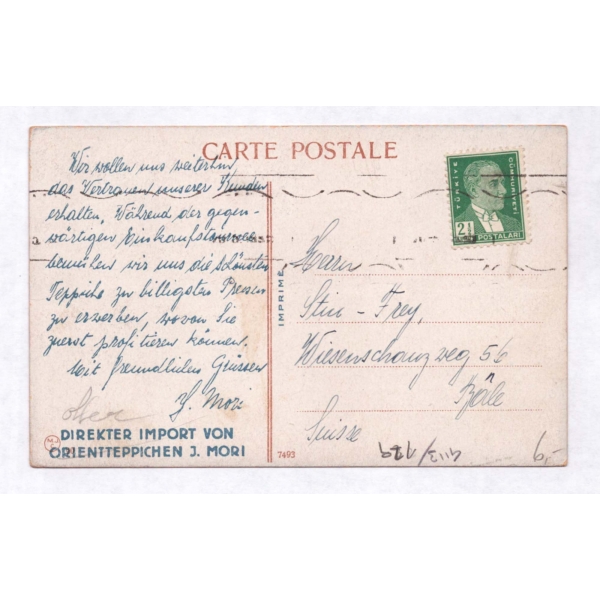 CARTE POSTALE
Wir wollen uns weiterhin
das Vertrauen unserer Kunden
erhalten. Während der gegen-
wärtigen Einkaufstournee
bemühen wir uns die schönsten
Teppiche zu billigsten Preisen
zu erwerben, wovon Sie
zuerst profitieren können.
Mit freundlichen Grüssen
J. Mori
DIREKTER IMPORT VON
ORIENTTEPPICHEN J. MORI
IMPRIMÉ
7493
TÜRKİYE
CÜMHURİYETİ
2½
POSTALARI
Herrn
Stin-Frey,
Wiesenschanzweg 56
Bâle
Suisse
6,-